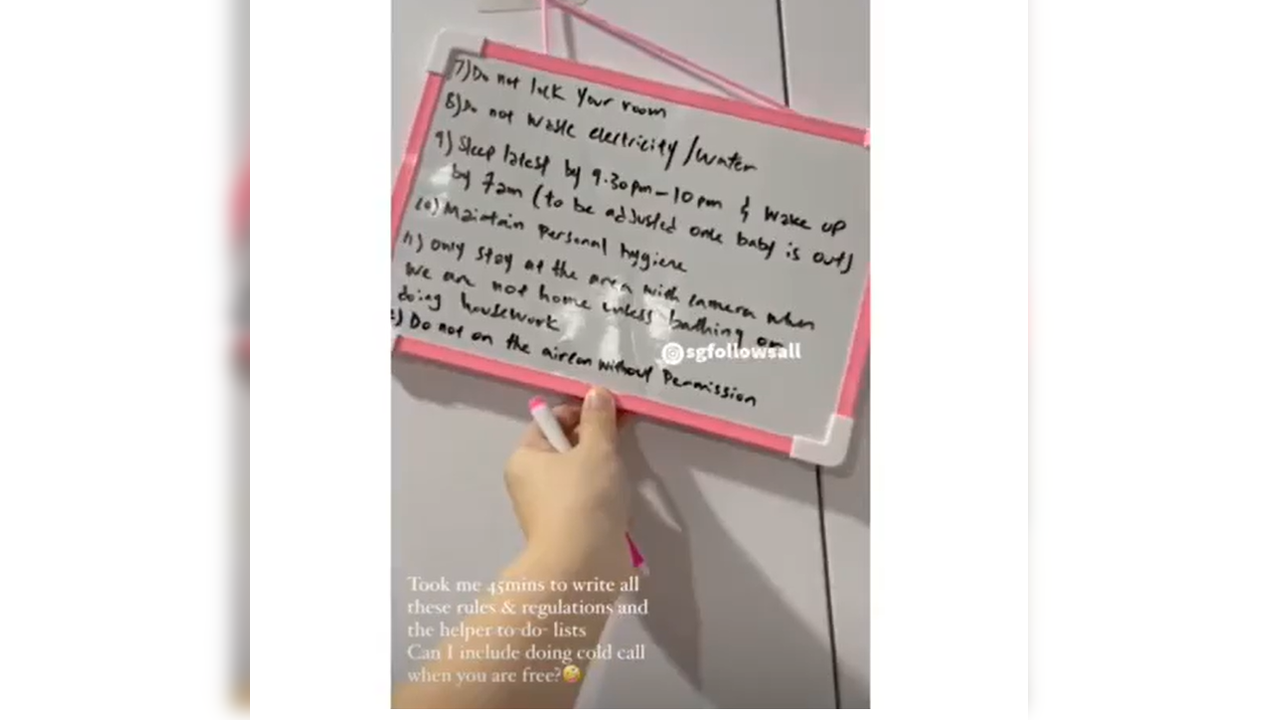 7) Do not lock Your room
8) Do not waste electricity/water
9) Sleep latest by 9.30pm - 10pm & wake up
by 7am (to be adjusted once baby is out)
10) Maintain Personal hygiene
11) only stay at the area with camera when
we are not home unless bathing or
doing housework
) Do not on the aircon without Permission
@sgfollowsall
Took me 45mins to write all
these rules & regulations and
the helper to-do- lists
Can I include doing cold call
when you are free?🤪